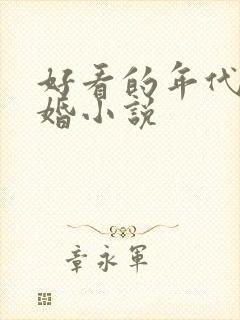 好看的年代
婚小说
章永军